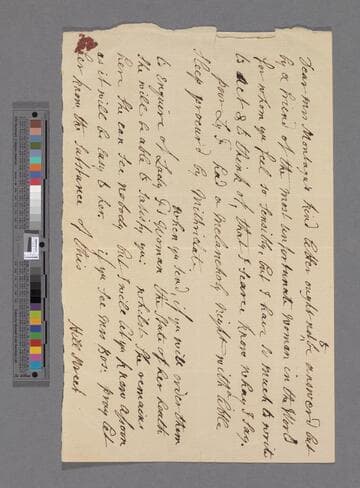 Dear Mrs Montagu's kind letter ought not to be answered but
by a friend of the most unfortunate Woman in the World
for whom you feel so sensibly, but I have so much to write
to act & to think of, that I scarce know what I say.
poor Ly had a Melancholy Night with a little
Sleep procured by Mithridat.
when you send, if you will order them
to Enquire of Lady Woman the State of her health
she will be able to satisfy you; whilst She remains
here She can See nobody but I will let you know as soon
as it will be easy to her. if you see Mrs Bos: pray let
her know the Substance of this
Hill Street